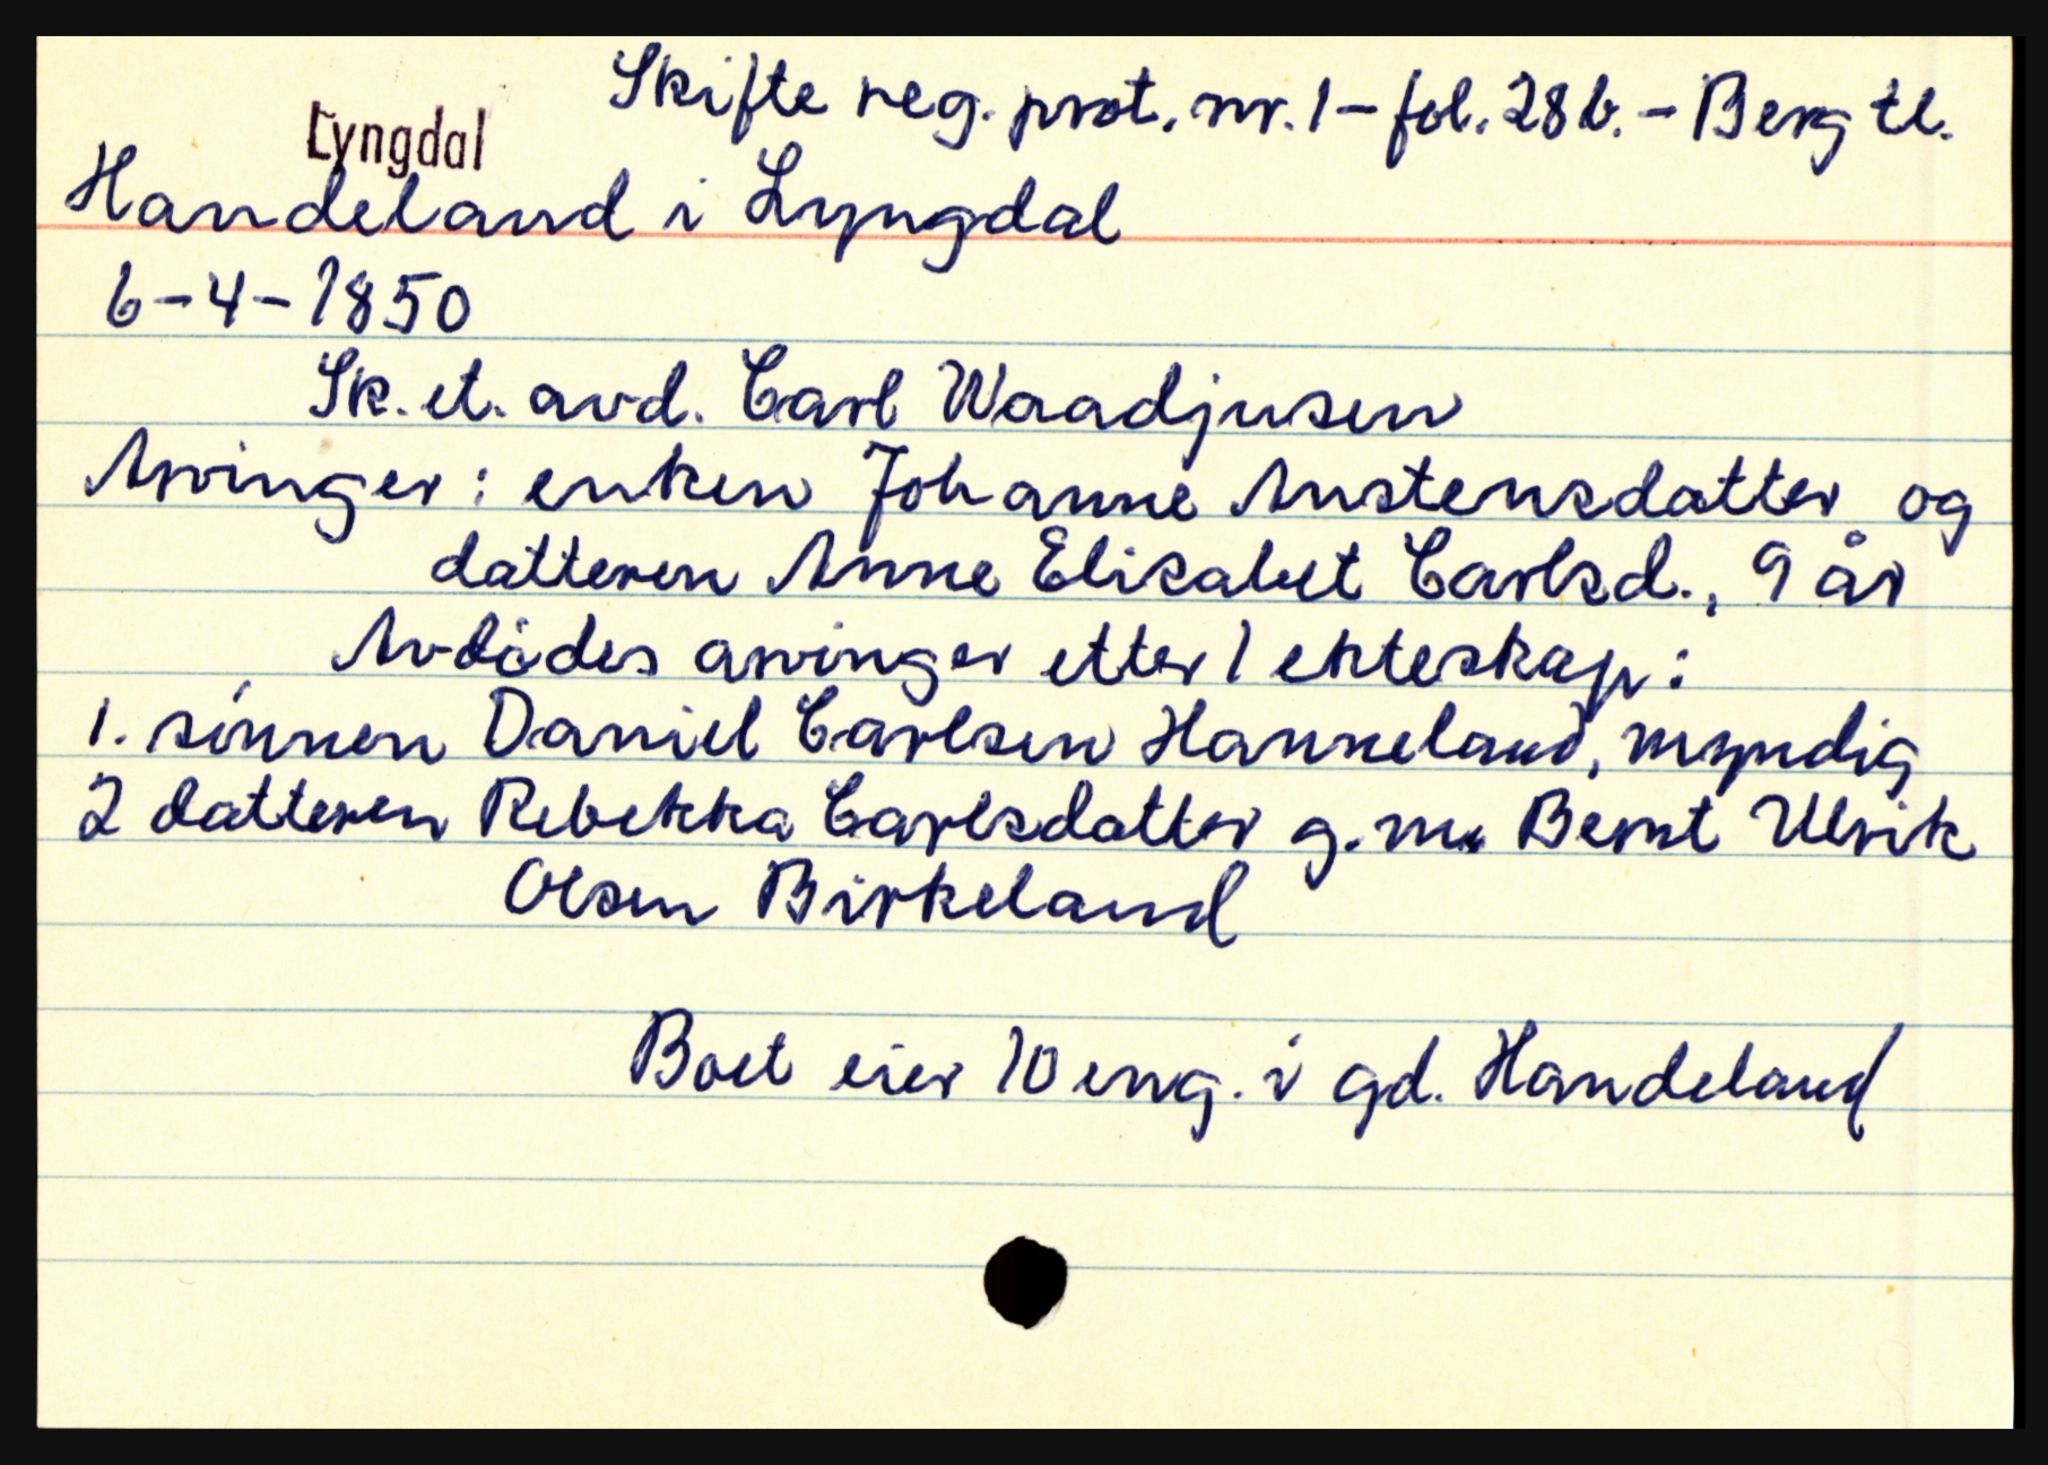 Skifte reg. prot. nr. 1 - fol. 28b. - Berg tl.
Lyngdal
Handeland i Lyngdal
6-4-1850
Sk. et. avd. Carl Waadjusen
Arvinger: enken Johanne Austensdatter og
datteren Anne Elisabet Carlsd., 9 år
Avdødes arvinger etter 1 ekteskap:
1. sønnen Daniel Carlsen Hanneland, myndig
2 datteren Rebekka Carlsdatter g.m. Bernt Ulrik
Olsen Birkeland
Boet eier 10 eng. i gd. Handeland